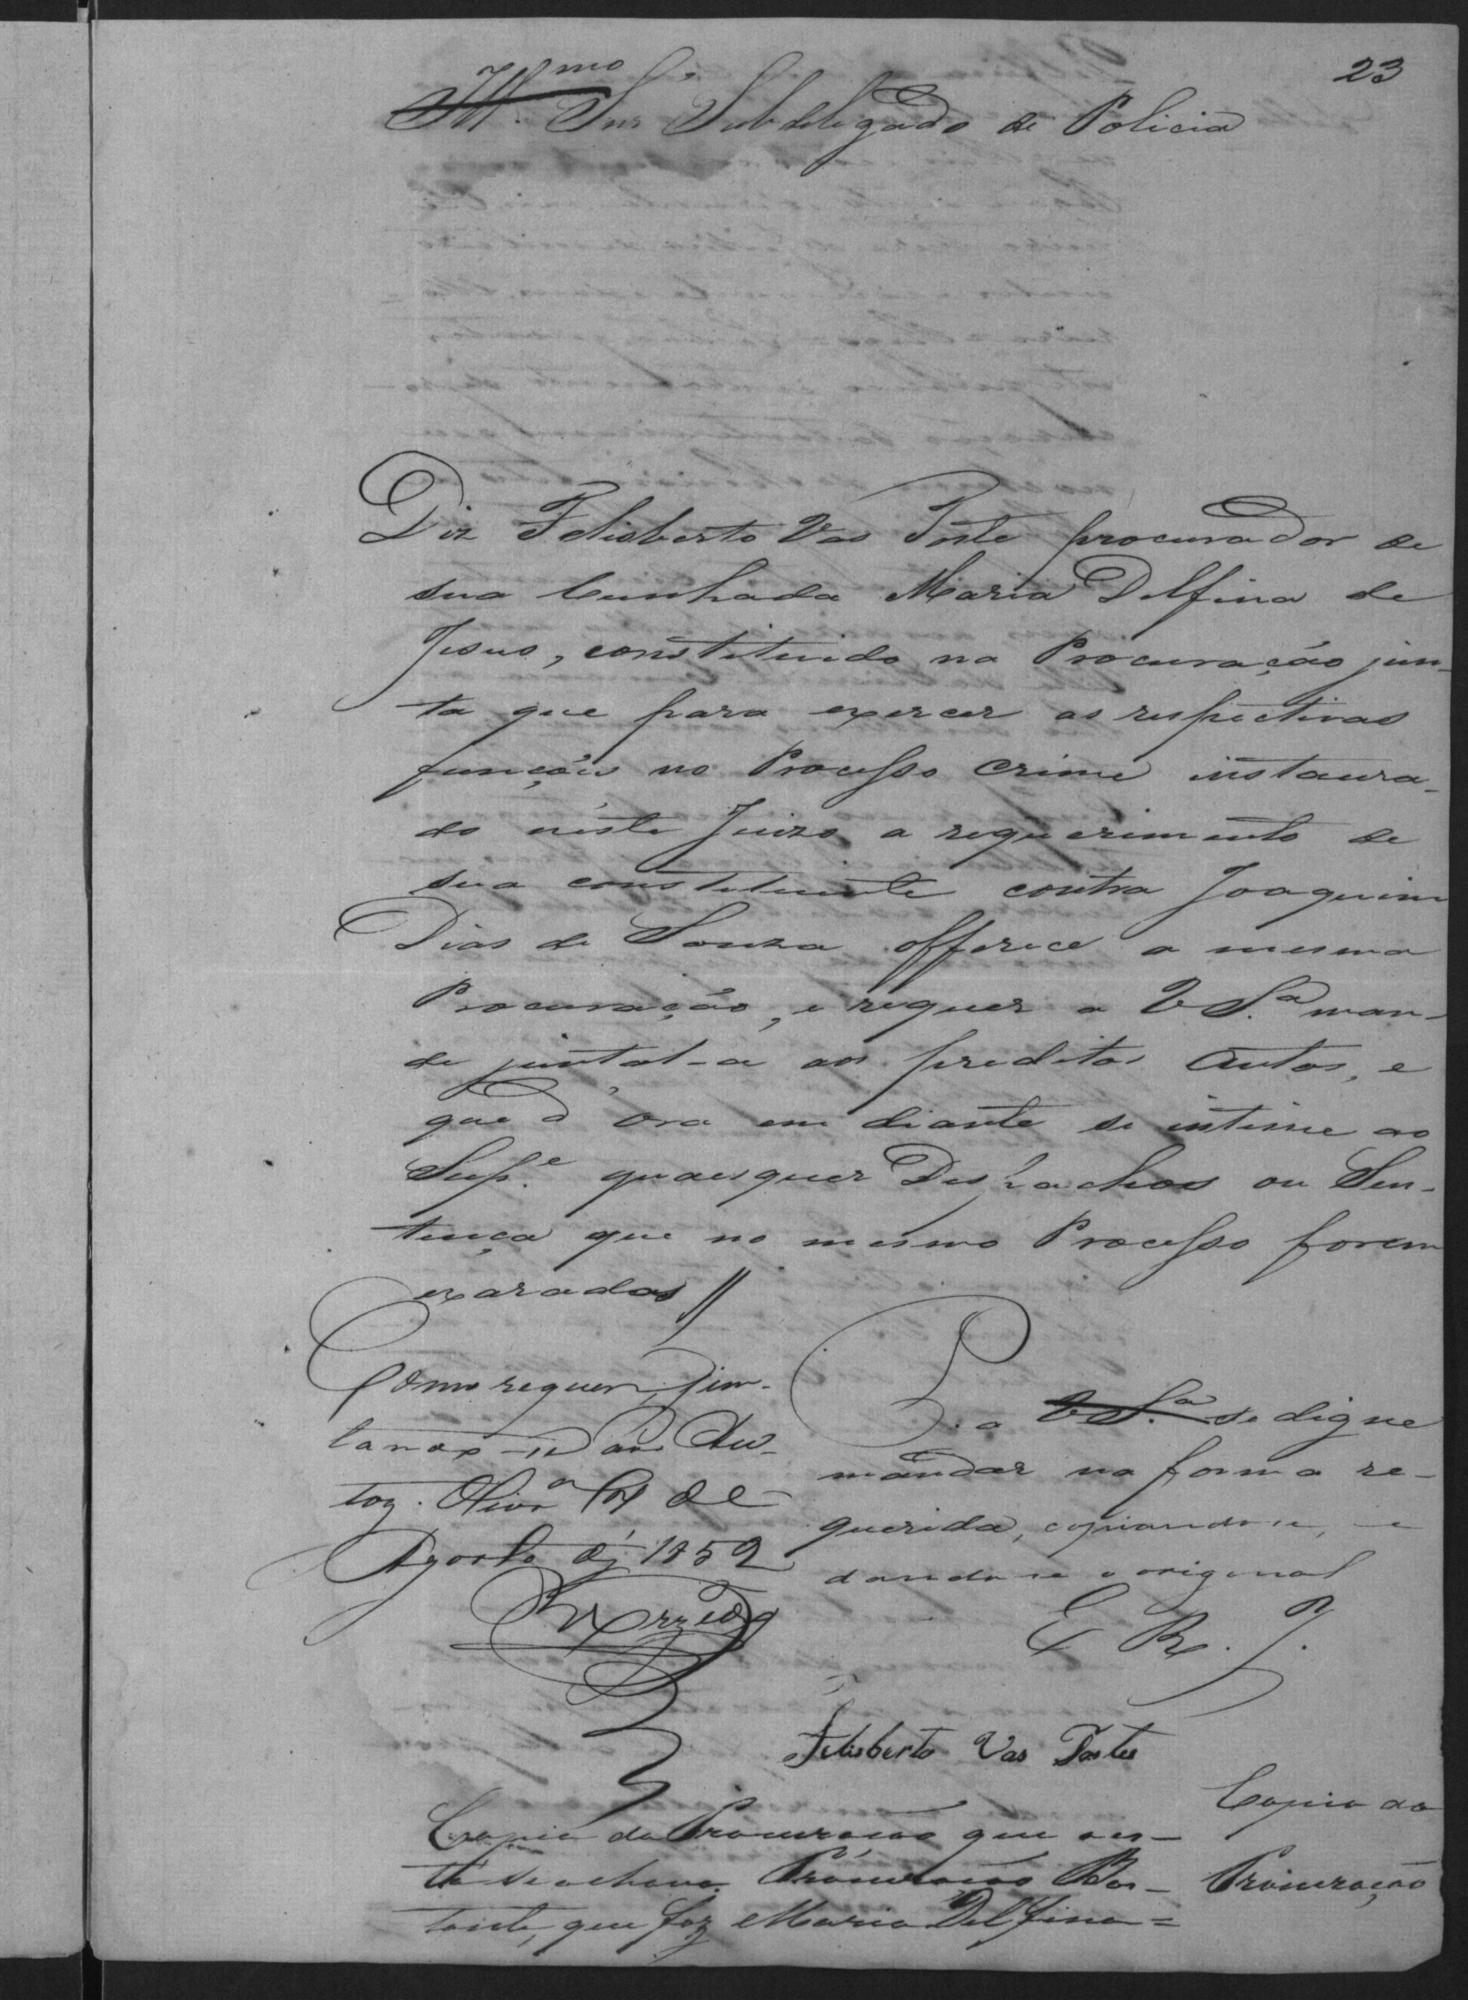 23
Illmo. Snr. Subdelegado de Policia
Diz Felisberto Vas Poste procurador de
sua Cunhada Maria Delfina de
Jesus, constituido na Procuração jun-
ta que para exercer as respectivas
funções no Processo crime instaura-
do néste Juizo a requerimento de
sua constituinte contra Joaquim
Dias de Souza offerece a mesma
Procuração, e requer a V S.ª man-
de juntal-a aos preditos Autos, e
que d'ora em diante se intime ao
Supe. quaesquer Despachos ou Sen-
tença que no mesmo Processo forem
exarados //
Como requer, jun-
tando-se aos Au-
tos. Olivra de
Agosto de 1852
P. a V S.ª se digne
mandar na forma re-
querida, copiando-se, e
dando-se o original
E R. J.
Felisberto Vas Tostes
Copia da
Procuração
Copia da Procuração que nes-
ta se achava. Procuração Bas-
tante, que faz Maria Delfina=